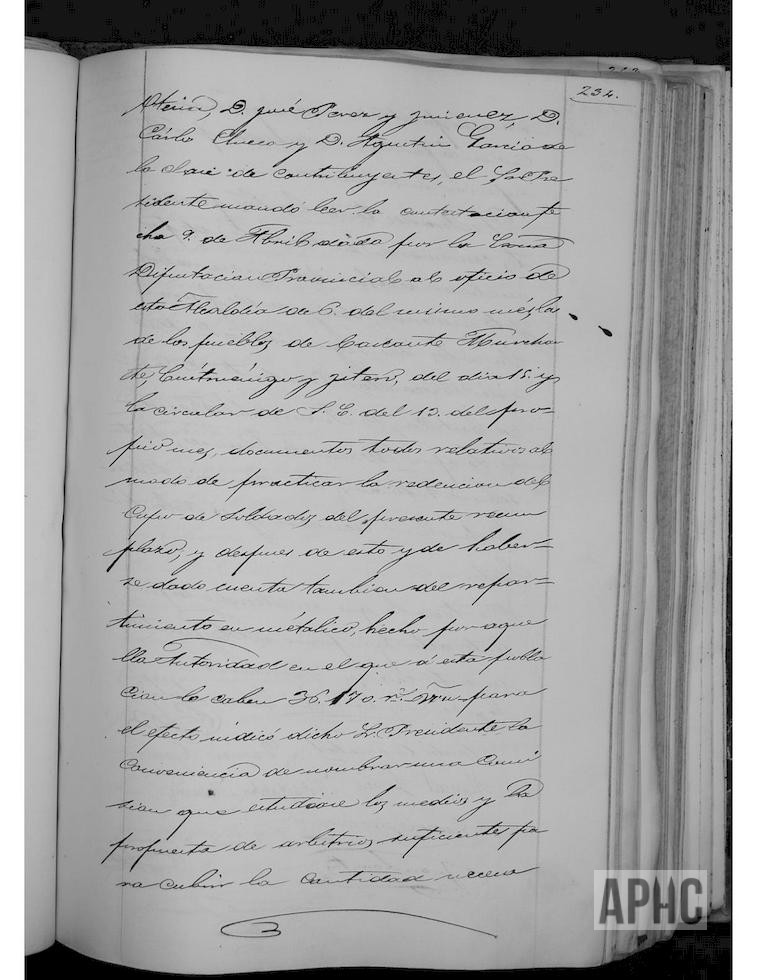 234.
D. José Perez y Jimenez, D.
Cárlo Checa y D. Agustin Garcia de
la clase de contribuyentes, el Sr. Pre
sidente mandó leer la contestacion fe
cha 9. de Abril dada por la Exma
Diputacion Provincial al oficio de
esta Alcaldía de 6. del mismo més, la
de los pueblos de Cascante Murcha
te, Cintruénigo y Fitero, del dia 15. y
la circular de S. E. del 13. del pro-
pio mes, documentos todos relativos al
modo de practicar la redencion del
Cupo de Soldados del presente reem
plazo, y despues de esto y de haber-
se dado cuenta tambien del repar-
timiento en métalico, hecho por aque
lla Autoridad en el que á esta pobla
cion le caben 36.170. rs. vn para
el efecto indicó dicho Sr. Presidente la
Conveniencia de nombrar una Comi
sion que estudiase los medios y
propuesta de arbitrios suficientes pa
ra cubrir la Cantidad necesa
APHC